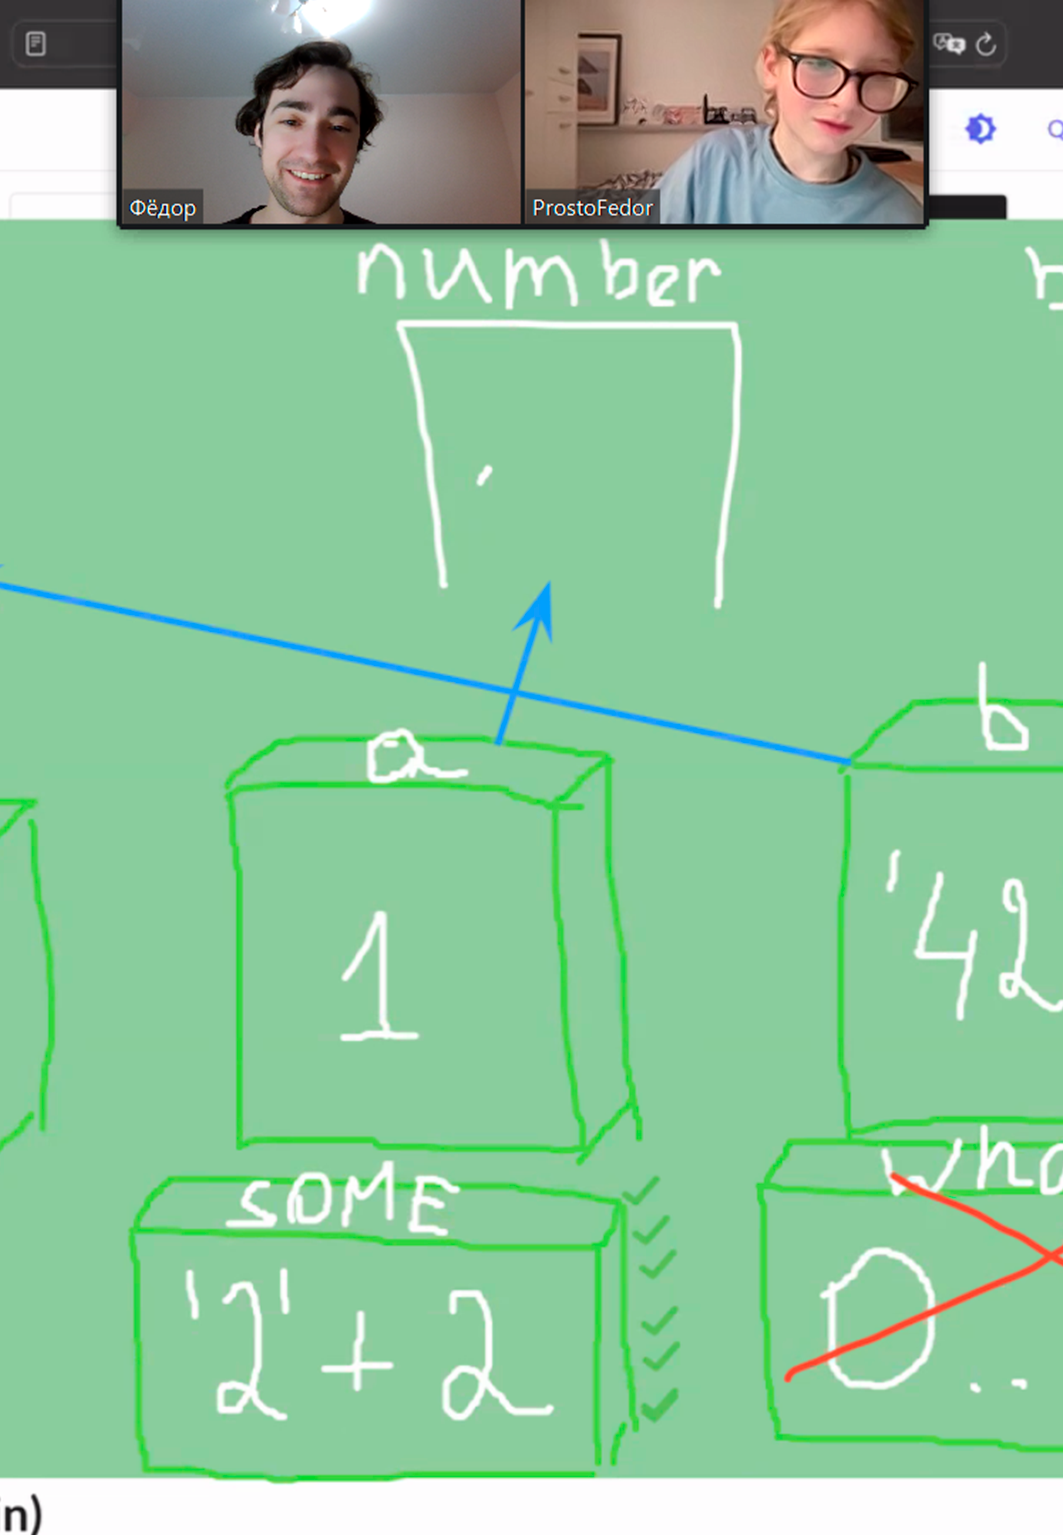 Фёдор
ProstoFedor
number
a
b
1
'42
SOME
'2' + 2
0..
in)